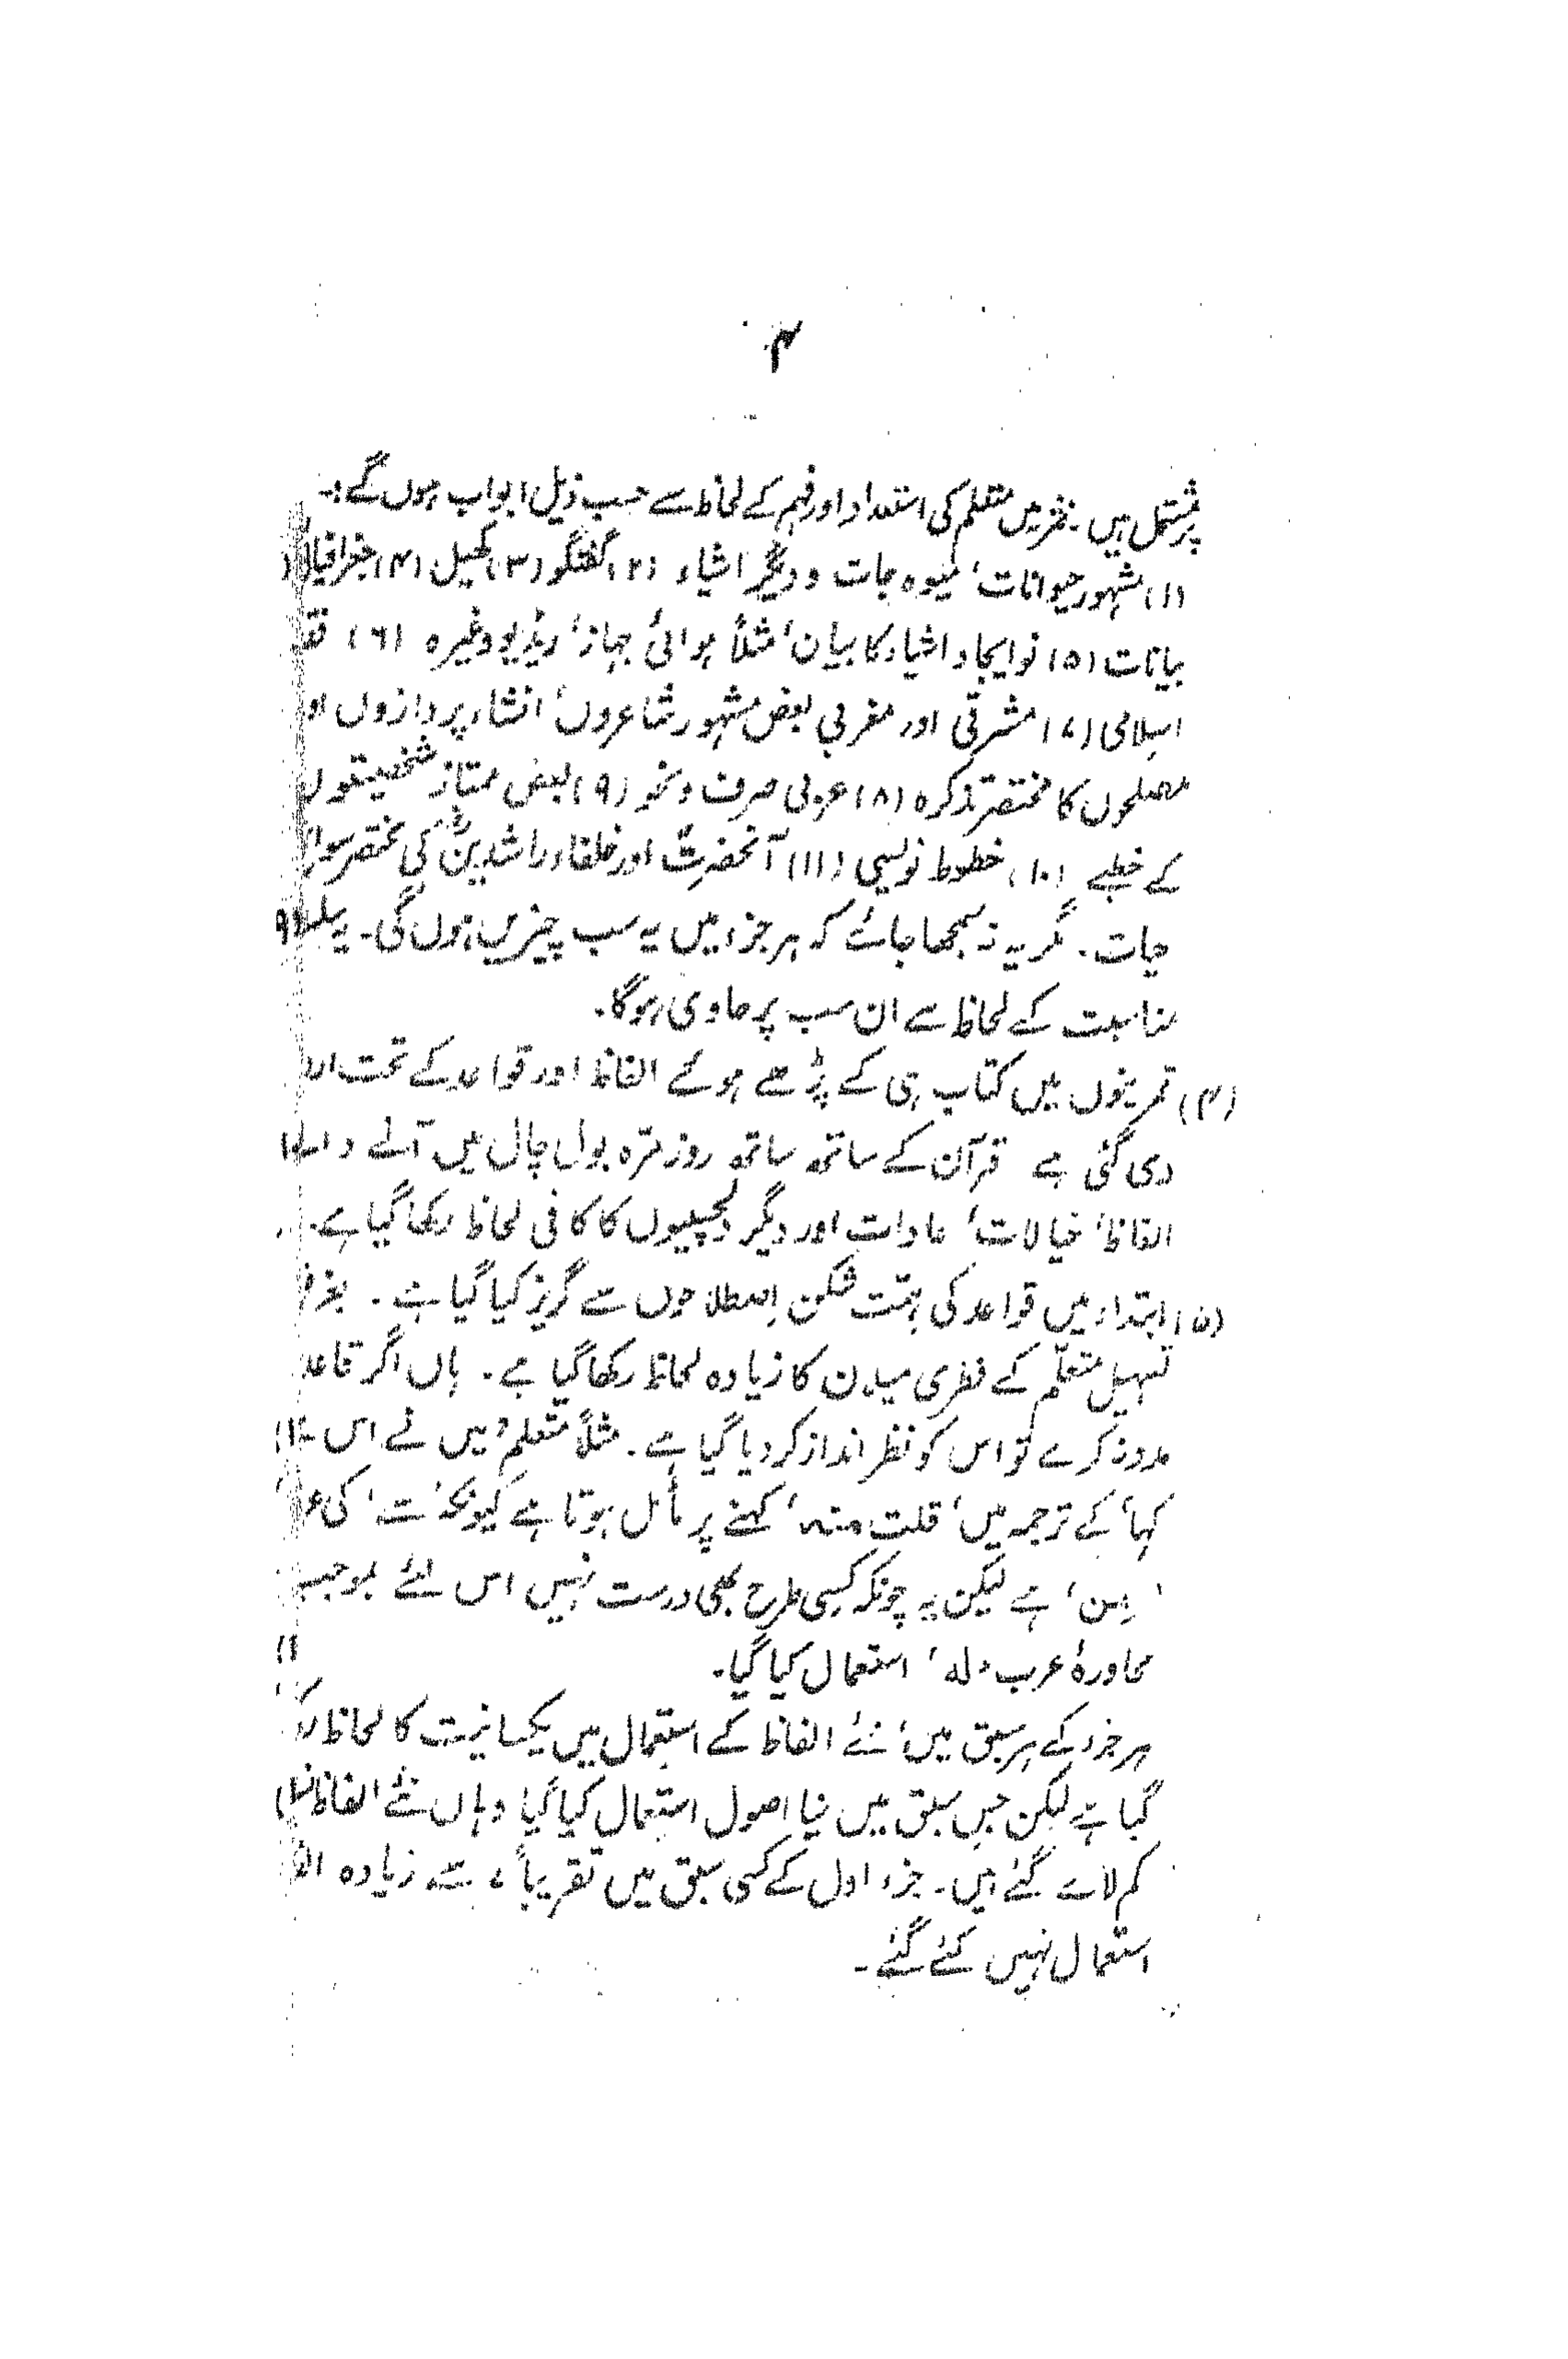 ۴
پر مشتمل ہیں۔ نثر میں متعلم کی استعداد اور فہم کے لحاظ سے حسب ذیل ابواب ہوں گے:۔
(۱) مشہور حیوانات، میوہ جات و دیگر اشیاء (۲) گفتگو (۳) کھیل (۴) جغرافیائی
بیانات (۵) نو ایجاد اشیاء کا بیان، مثلاً ہوائی جہاز، ریڈیو وغیرہ (۶)
اسلامی (۷) مشرقی اور مغربی بعض مشہور شاعروں، انشاء پردازوں او
مصلحوں کا مختصر تذکرہ (۸) عربی صرف و نحو (۹) بعض ممتاز شخصیتوں
کے خطبے (۱۰) خطوط نویسی (۱۱) آنحضرتؐ اور خلفاء راشدینؓ کی مختصر سوانح
حیات۔ مگر یہ نہ سمجھا جائے کہ ہر جزء میں یہ سب چیزیں ہوں گی۔
مناسبت کے لحاظ سے ان سب پر حاوی ہوگا۔
(۴) تمرینوں میں کتاب ہی کے پڑھے ہوئے الفاظ اور قواعد کے تحت
دی گئی ہے قرآن کے ساتھ ساتھ روز مرّہ بول چال میں آنے والے
الفاظ، خیالات، عادات اور دیگر دلچسپیوں کا کافی لحاظ رکھا گیا ہے۔
(۵) ابتداء میں قواعد کی ہمّت شکن اصطلاحوں سے گریز کیا گیا ہے۔ بغرض
تسہیل متعلّم کے فطری میلان کا زیادہ لحاظ رکھا گیا ہے۔ ہاں اگر قاعد
مدد نہ کرے تو اس کو نظر انداز کر دیا گیا ہے۔ مثلاً متعلم 'میں نے اس سے
کہا' کے ترجمہ میں 'قلت منہ' کہنے پر مائل ہوتا ہے کیونکہ 'سے' کی
'مِن' ہے لیکن یہ چونکہ کسی طرح بھی درست نہیں اس لئے بموجب
محاورۂ عرب 'لہ' استعمال کیا گیا۔
ہر جزء کے ہر سبق میں، نئے الفاظ کے استعمال میں یکسانیت کا لحاظ
گیا ہے لیکن جس سبق میں نیا اصول استعمال کیا گیا وہاں نئے الفاظ
کم لائے گئے ہیں۔ جزء اول کے کسی سبق میں تقریباً ۷ سے زیادہ
استعمال نہیں کئے گئے۔